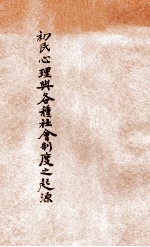 初民心理與各種社會制度之起源